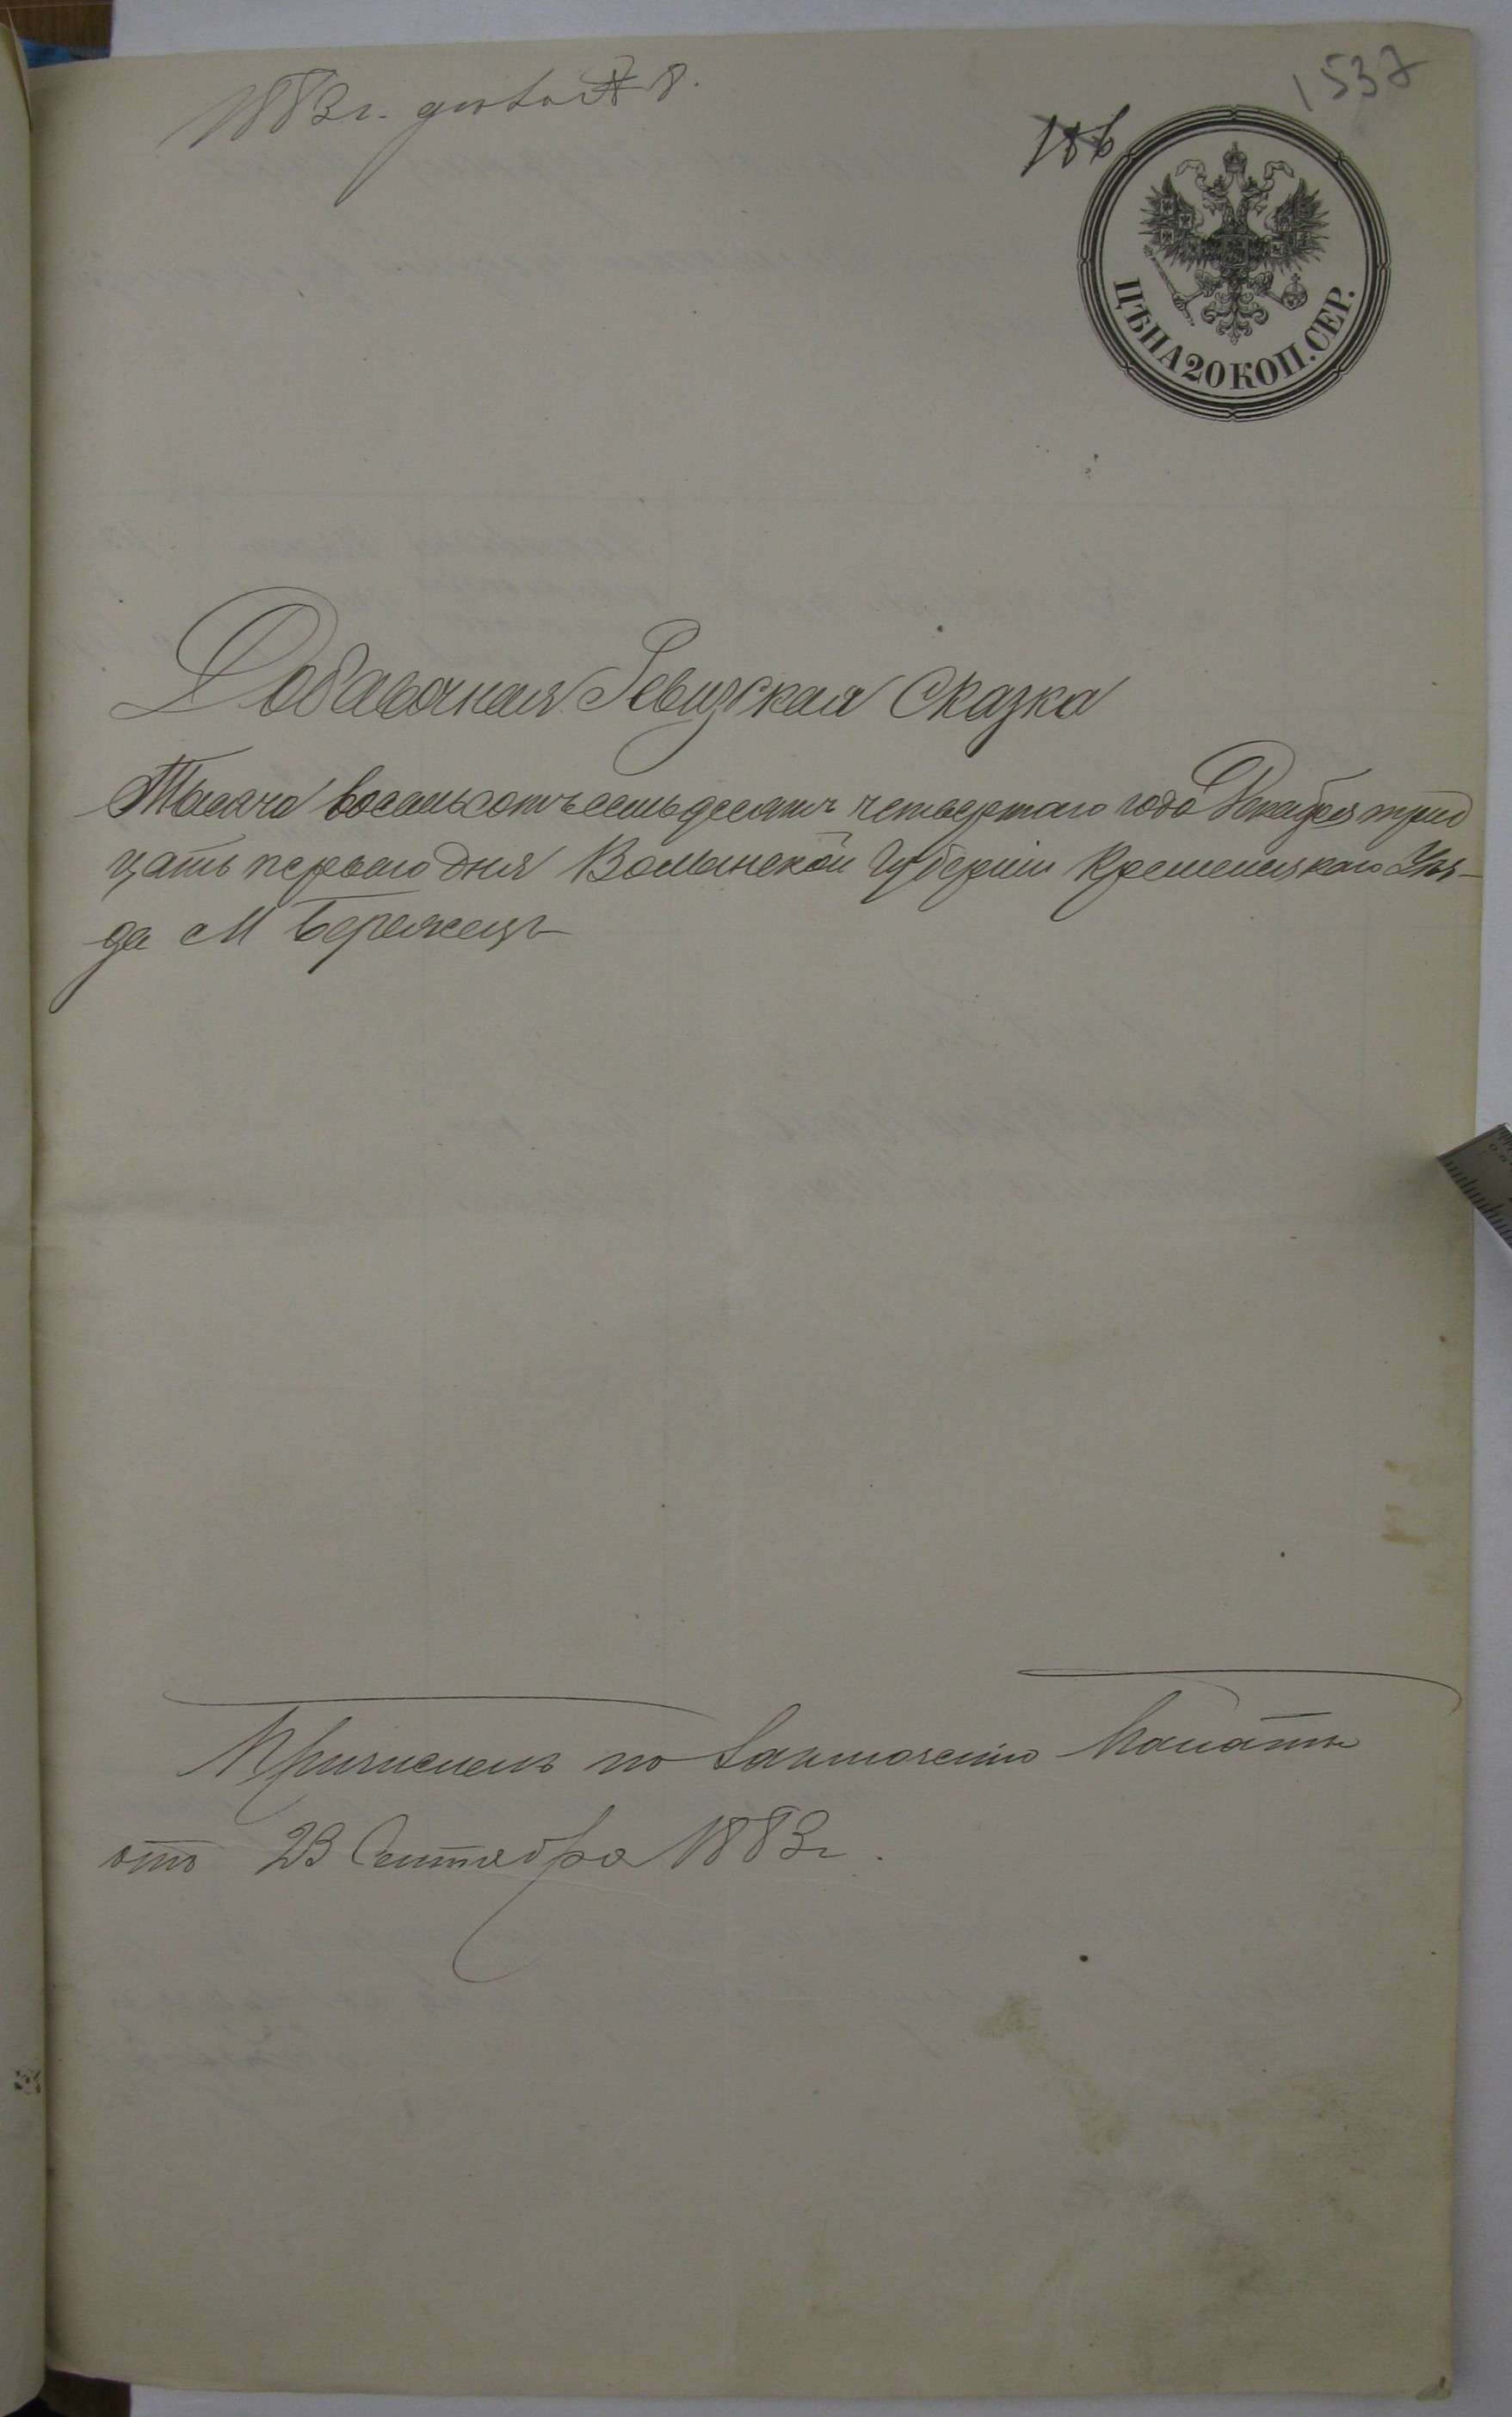 1883 г. дѣло № 8.
1537
186
ЦѢНА 20 КОП. СЕР.
Добавочная Ревизская Сказка
Тысяча восемьсотъ семьдесятъ четвертаго года Декабря трид
цать перваго дня Волынской Губерніи Кременецкаго Уѣз-
да М Бережецъ
Причисленъ по заключенію Палаты
отъ 23 Сентября 1883 г.